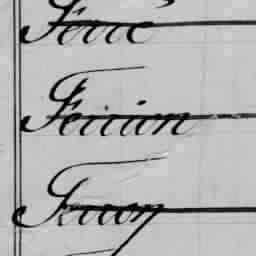 Ferré
Ferrion
Ferron